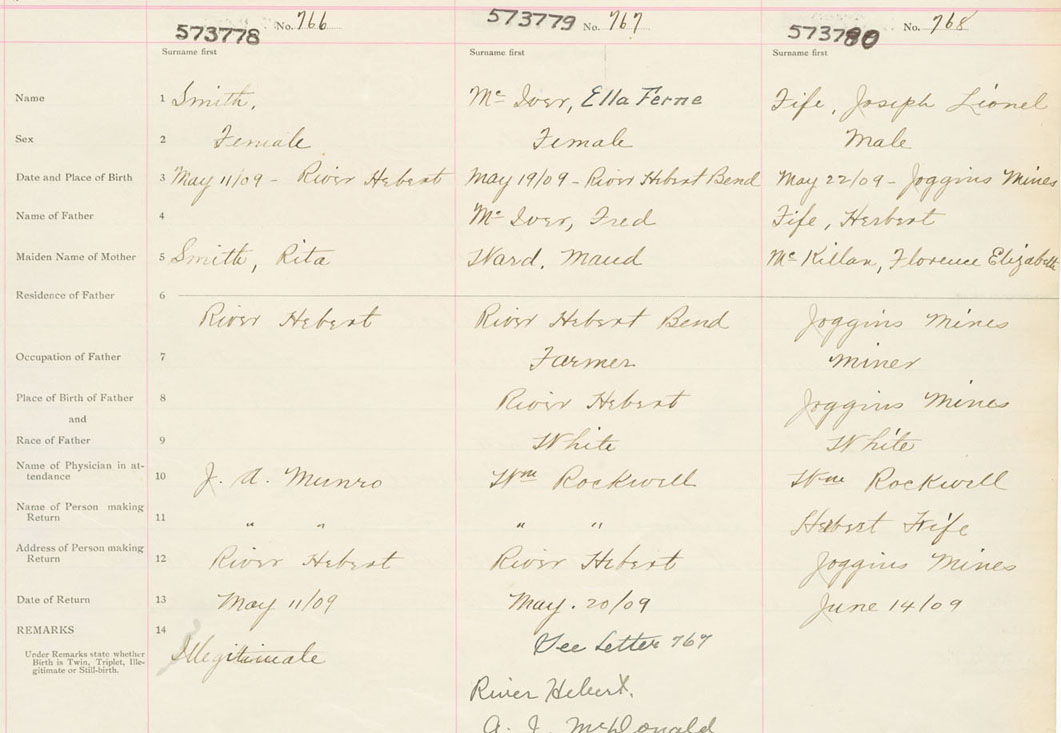 573778 No. 766 573779 No. 767 573780 No. 768
Surname first Surname first Surname first
Name 1 Smith, Mc Iver, Ella Ferne Fife, Joseph Lionel
Sex 2 Female Female Male
Date and Place of Birth 3 May 11/09 - River Hebert May 19/09 - River Hebert Bend May 22/09 - Joggins Mines
Name of Father 4 Mc Iver, Fred Fife, Herbert
Maiden Name of Mother 5 Smith, Rita Ward, Maud Mc Killan, Florence Elizabeth
Residence of Father 6
River Hebert River Hebert Bend Joggins Mines
Occupation of Father 7 Farmer Miner
Place of Birth of Father 8 River Hebert Joggins Mines
and
Race of Father 9 White White
Name of Physician in at-
tendance 10 J. A. Munro Wm Rockwell Wm Rockwell
Name of Person making
Return 11 " " " " Hebert Fife
Address of Person making
Return 12 River Hebert River Hebert Joggins Mines
Date of Return 13 May 11/09 May. 20/09 June 14/09
REMARKS 14
Under Remarks state whether
Birth is Twin, Triplet, Ille-
gitimate or Still-birth.
Illegitimate See Letter 767
River Hebert.
A. J. McDonald